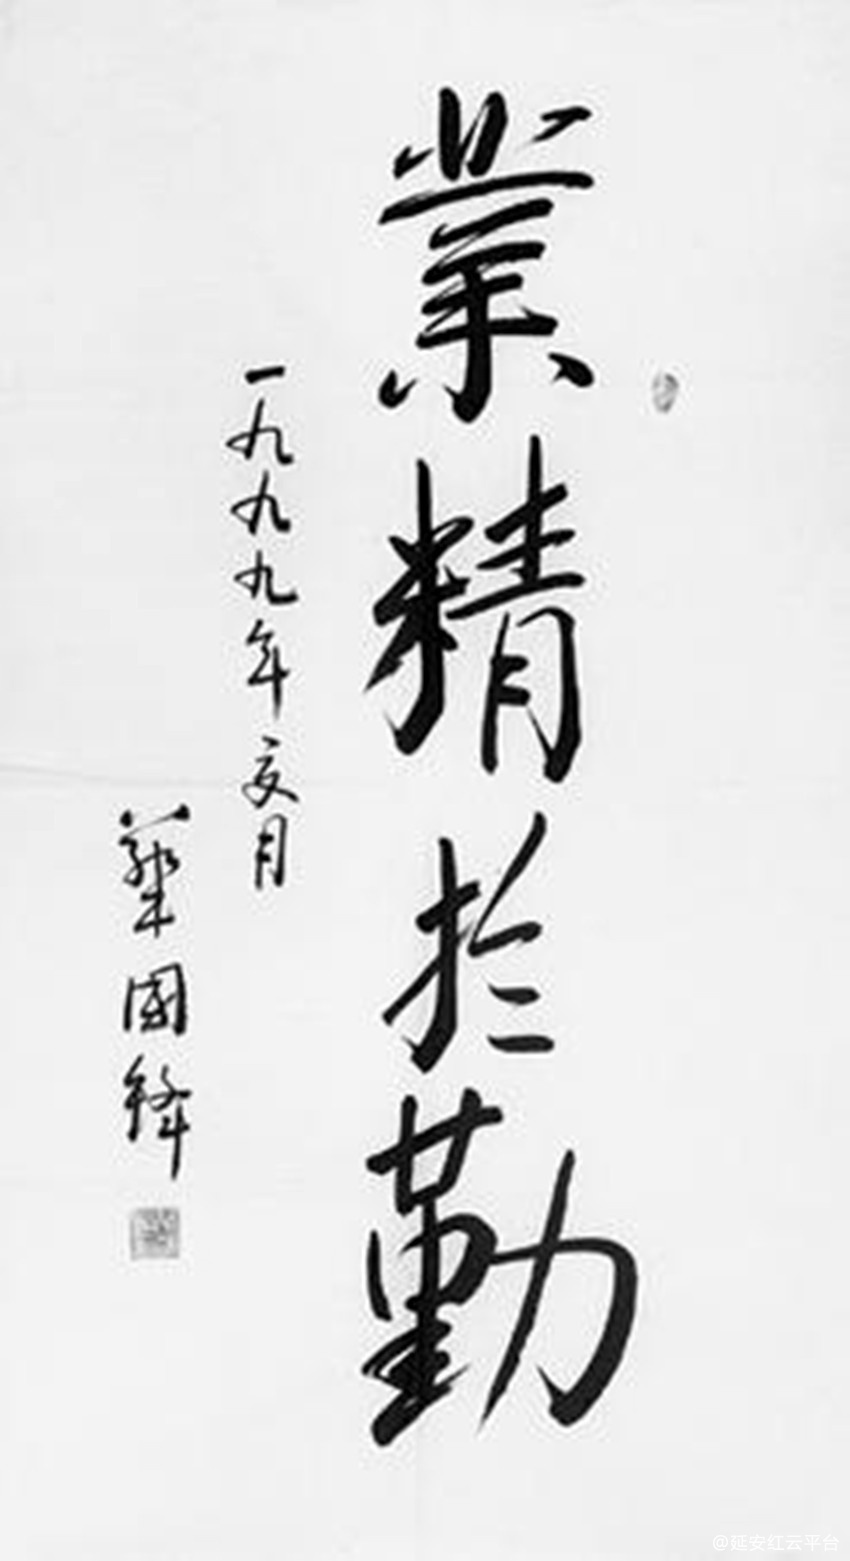 業精於勤
一九九九年亥月
華國鋒
@延安红云平台